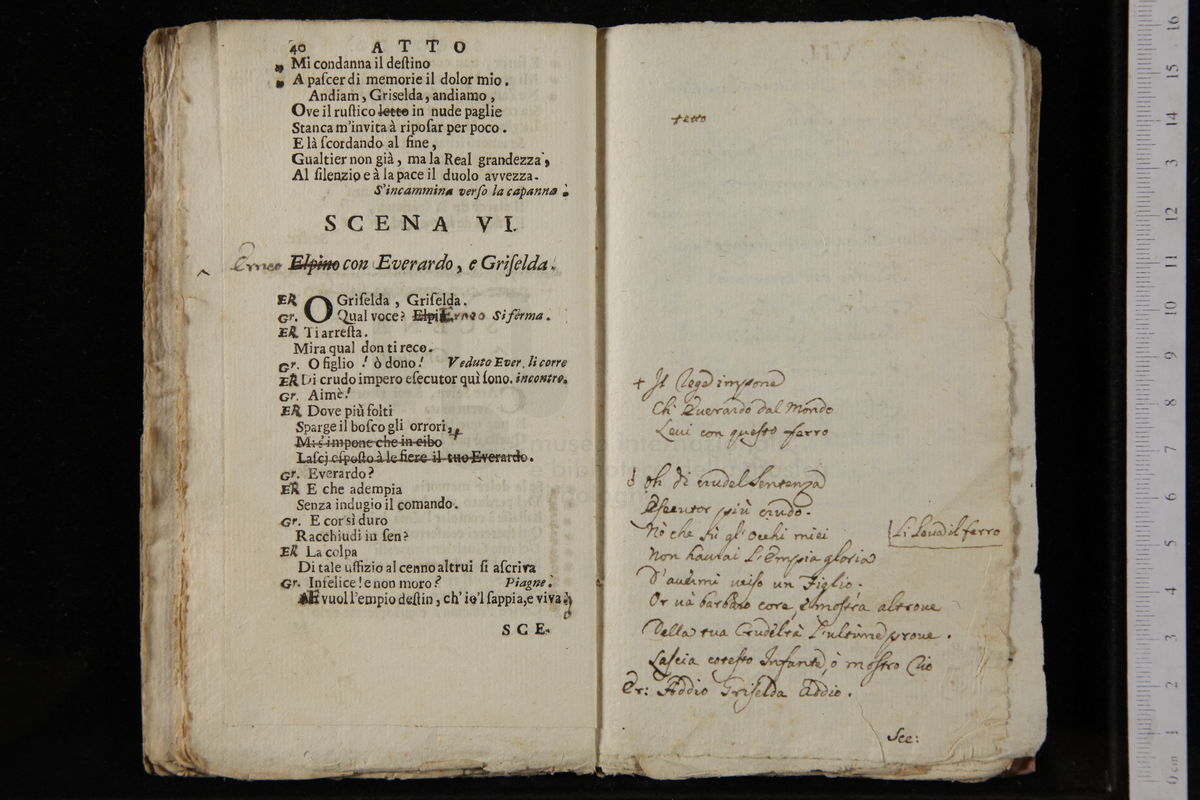 40 ATTO
Mi condanna il deſtino
A paſcer di memorie il dolor mio.
Andiam, Griſelda, andiamo,
Ove il ruſtico letto in nude paglie
Stanca m'invita à ripoſar per poco.
E là ſcordando al fine,
Gualtier non già, ma la Real grandezza,
Al ſilenzio e à la pace il duolo avvezza.
S'incammina verſo la capanna.
SCENA VI.
Erneo Elpino con Everardo, e Griſelda.
ER O Griſelda, Griſelda.
Gr. Qual voce? Elpi Erneo Si ferma.
ER Ti arreſta.
Mira qual don ti reco.
Gr. O figlio! ò dono! Veduto Ever. li corre
ER Di crudo impero eſecutor quì ſono. incontro.
Gr. Aimè!
ER Dove più folti
Sparge il boſco gli orrori, +
Mi s'impone che in cibo
Laſci eſpoſto à le fiere il tuo Everardo.
Gr. Everardo?
ER E che adempia
Senza indugio il comando.
Gr. E cor sì duro
Racchiudi in ſen?
ER La colpa
Di tale uffizio al cenno altrui ſi aſcriva
Gr. Infelice! e non moro? Piagne.
E vuol l'empio deſtin, ch'io'l ſappia, e viva?
SCE.
tetto
+ Il Rege impone
Ch' Everardo dal Mondo
Levi con queſto ferro
oh di crudel Sentenza
Eſecutor più crudo.
Nò che sù gl'occhi miei
Li Leva il ferro
Non haurai L'Empia gloria
D'avermi ucciſo un Figlio.
Or và barbaro core, e moſtra altrove
Della tua Crudeltà l'ultime prove.
Laſcia coteſto Infante, ò moſtro rio
Er: Addio Griſelda Addio.
Sce: